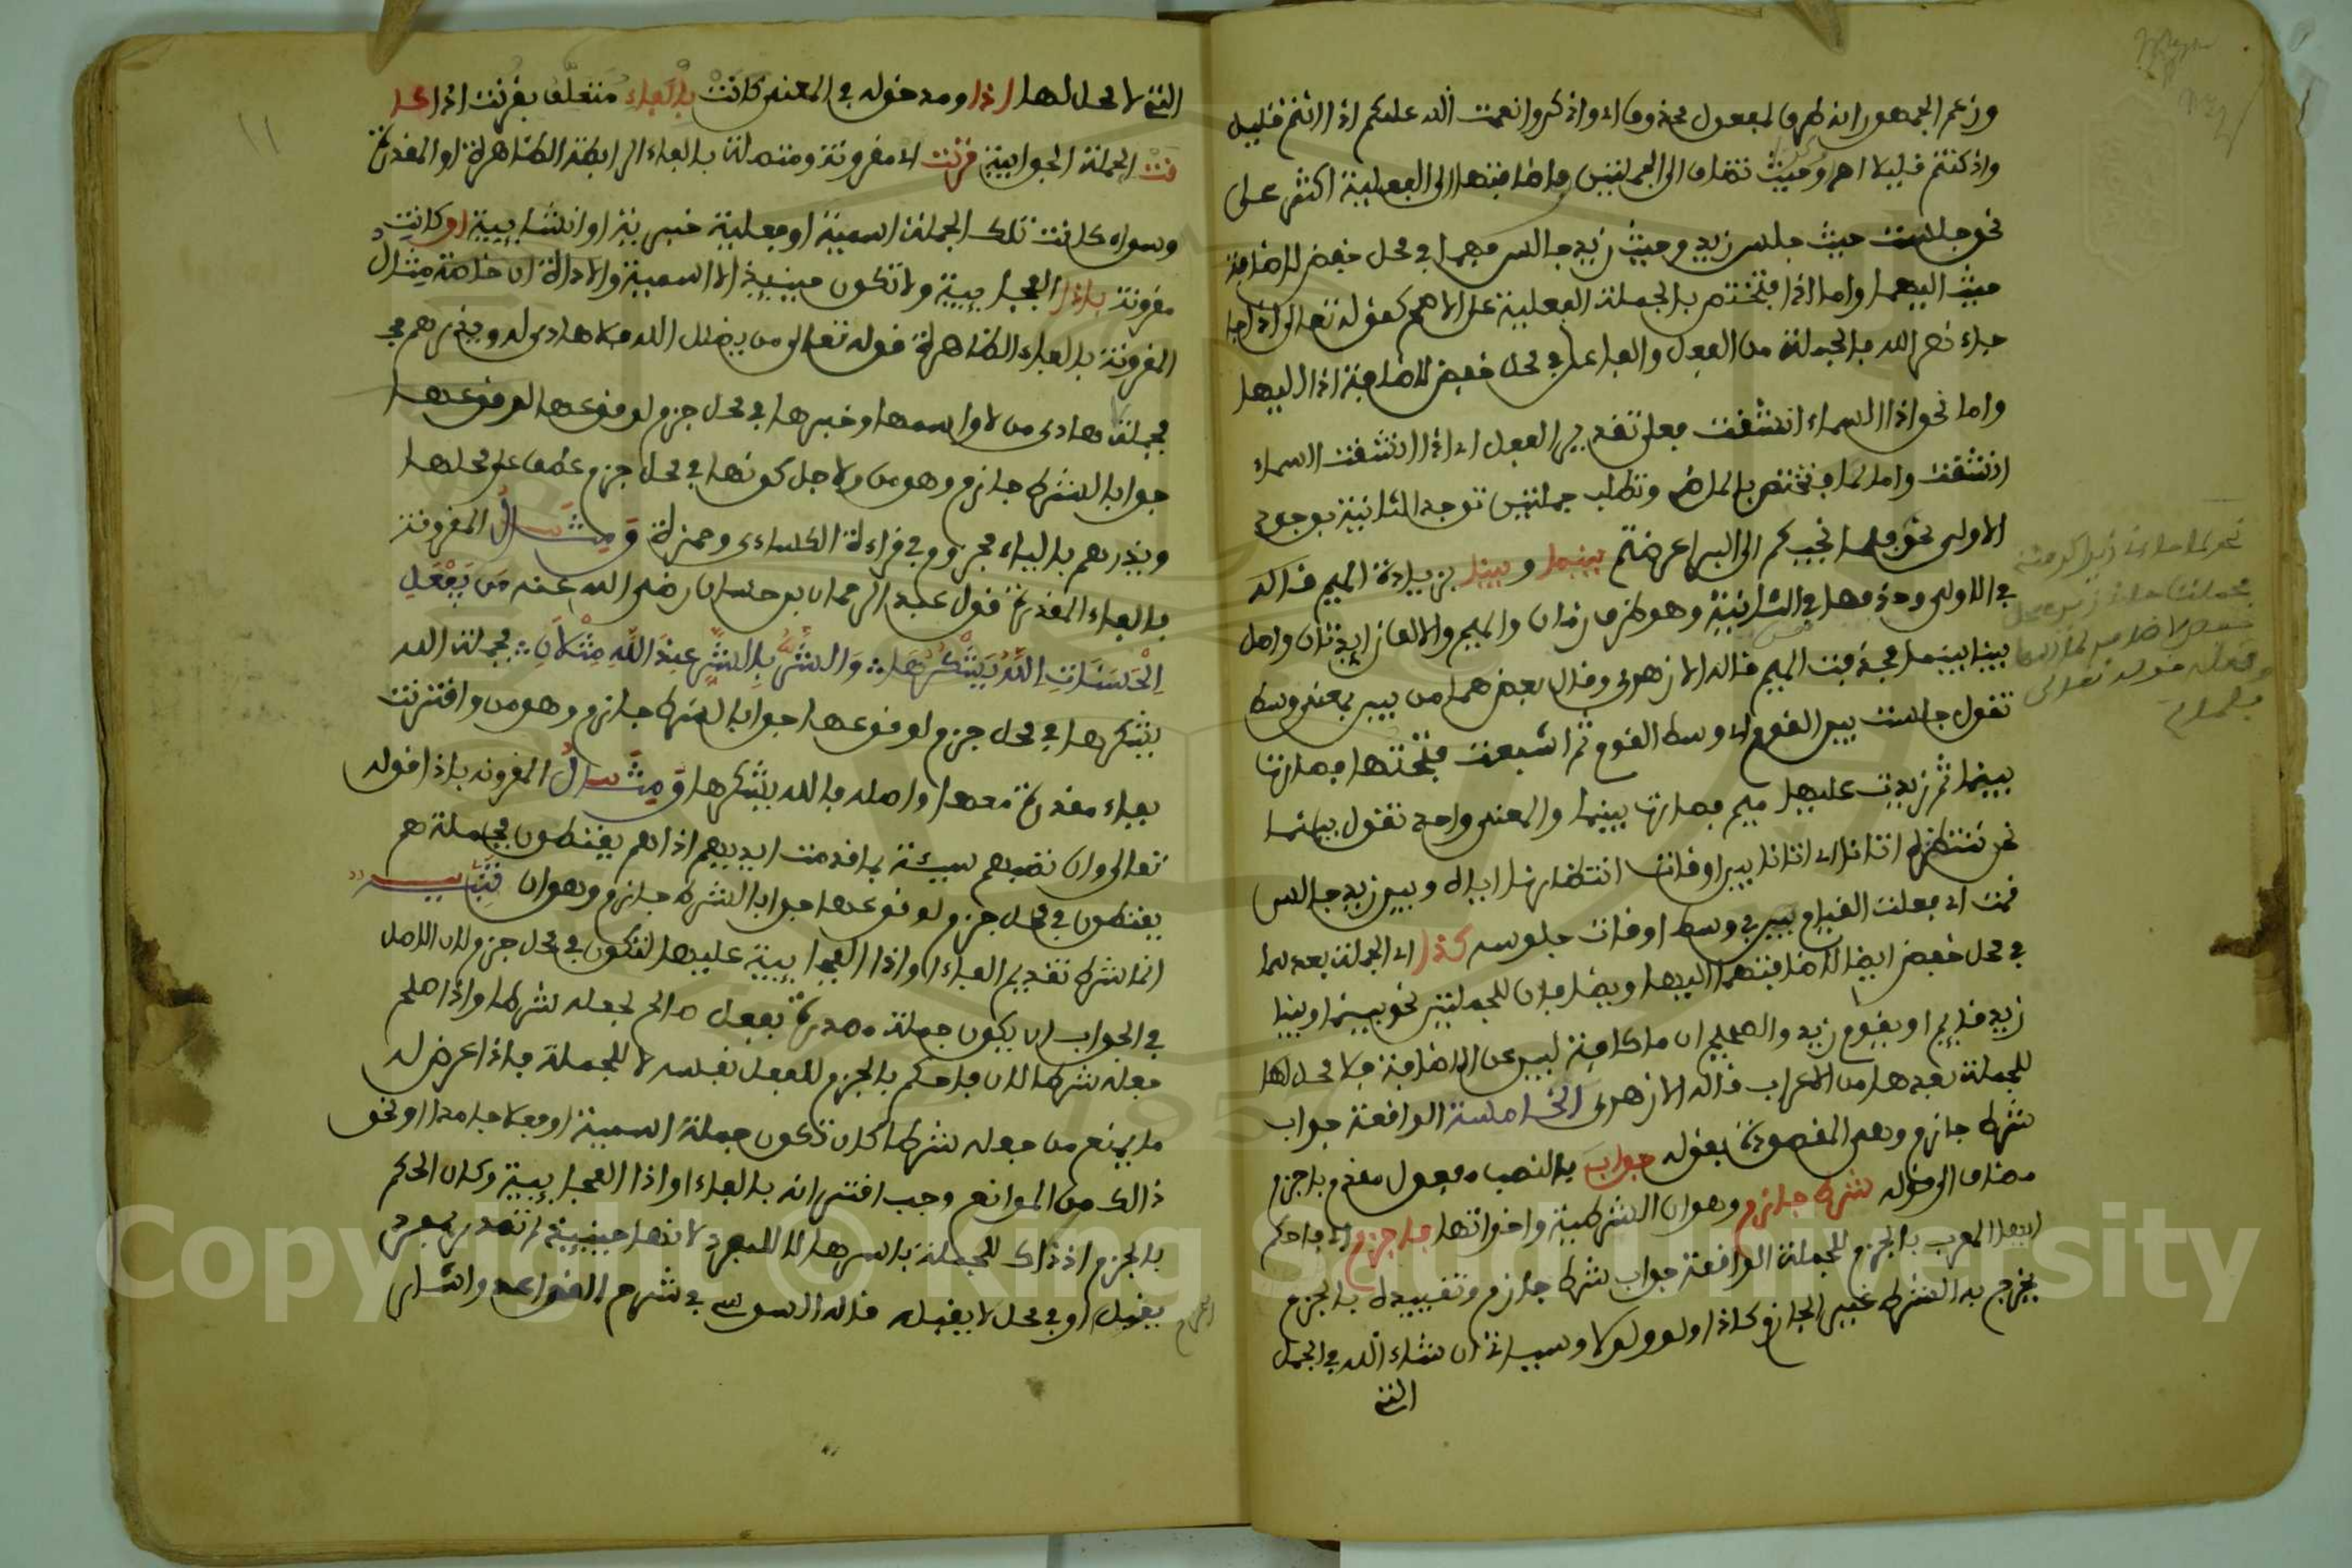 وزعم الجمهور انه ظرف لمفعول محذوف اي واذكروا نعمت الله عليكم اذ انتم قليل
واذكنتم قليلا اهـ وحيث تضاف الى الجملتين واضافتها الى الفعلية اكثر على
نحو جلست حيث جلس زيد وحيث زيد جالس فهما في محل خفض لاضافة
حيث اليهما واما اذا فتختص بالجملة الفعلية على الاصح كقوله تعالى اذا جا
جاء نصر الله فالجملة من الفعل والفاعل في محل خفض لاضافة اذا اليها
واما نحو اذا السماء انشقت فعلى تقدير الفعل اي اذا انشقت السماء
انشقت واما لما فتختص بالماضي وتطلب جملتين توجد الثانية بوجود
الاولى نحو فلما نجيكم الى البر اعرضتم بينما وبينا بزيادة الميم قاله
في الاولى وحذفها في الثانية وهو ظرف زمان والميم والالف زايدتان واصل
بينا بينما فحذفت الميم قاله الازهري وقال بعضهما من بين بمعنى وسط
تقول جلست بين القوم اي وسط القوم ثم اشبعت فتحتها فصارتا
بينما ثم زيدت عليها ميم فصارتا بينما والمعنى واحد تقول بينما
نحن ننتظره اتانا اي اتانا بين اوقات انتظارنا اياه وبين زيد جالس
قمت اي فعلت القيام بين في وسط اوقات جلوسه كذا اي الجملة بعدهما
في محل خفض ايضا لاضافتهما اليها ويضافان للجملتين نحو بينما وبينا
زيد قايم او يقوم زيد والصحيح ان ما كافة لبين عن الاضافة فلا محل لها
للجملة بعدها من الاعراب قاله الازهري الخامسة الواقعة جواب
شرط جازم وهي المقصودة بقوله جواب بالنصب مفعول مقدم باجزم
مضاف الى قوله شرط جازم وهو ان الشرطية واخواتها فاجزم اي فاحكم
ايها المعرب بالجزم للجملة الواقعة جواب شرط جازم وتقييده بالجزم
يخرج به الشرط غير الجازم كاذا ولو ولولا وسياتي ان شاء الله في الجمل
التي
التي لا محل لها اذا ومدخوله في المعنى كانت بالفاء متعلق بقرنت اذا كا
نت الجملة الجوابية قرنت اي مقرونة ومتصلة بالفاء الرابطة الظاهرة او المقدرة
وسواء كانت تلك الجملة اسمية او فعلية خبرية او انشايية او كانت
مقرونة باذا الفجايية ولا تكون حينيذ الا اسمية والاداة ان خاصة مثال
المقرونة بالفاء الظاهرة قوله تعالى من يضلل الله فلا هادي له ويذرهم
فجملة هادي من لا واسمها وخبرها في محل جزم لوقوعها لوقوعها
جوابا لشرط جازم وهو من ولاجل كونها في محل جزم عطف على محلها
ويذرهم بالياء مجزوم في قراءة الكساءي وحمزة ومثال المقرونة
بالفاء المقدرة قول عبد الرحمان بن حسان رضي الله عنه من يفعل
الحسنات الله يشكرها والشر بالشر عند الله مثلان فجملة الله
يشكرها في محل جزم لوقوعها جوابا لشرط جازم وهو من واقترنت
بفاء مقدرة معها واصله فالله يشكرها ومثال المقرونة باذا قوله
تعالى وان تصبهم سيئة بما قدمت ايديهم اذا هم يقنطون فجملة هم
يقنطون في محل جزم لوقوعها جوابا لشرط جازم وهو ان تنبيه
انما شرط تقديم الفاء او اذا الفجايية عليها لتكون في محل جزم لان الاصل
في الجواب ان يكون جملة مصدرة بفعل صالح لجعله شرطا واذا صلح
فعله شرطا كان فاحكم بالجزم للفعل نفسه لا للجملة فاذا عرض له
ما يمنع من جعله شرطا كان تكون جملة اسمية او فعلا جامدا او نحو
ذالك من الموانع وجب اقترانه بالفاء او اذا الفجايية وكان الحكم
بالجزم اذ ذاك للجملة باسرها لا للمفرد لانها حينيذ لم تصدر بمفرد
يقبل او في محل لا يقبله قاله السوسي في شرح القواعد واشار
١١
Copyright © King Saud University
1957